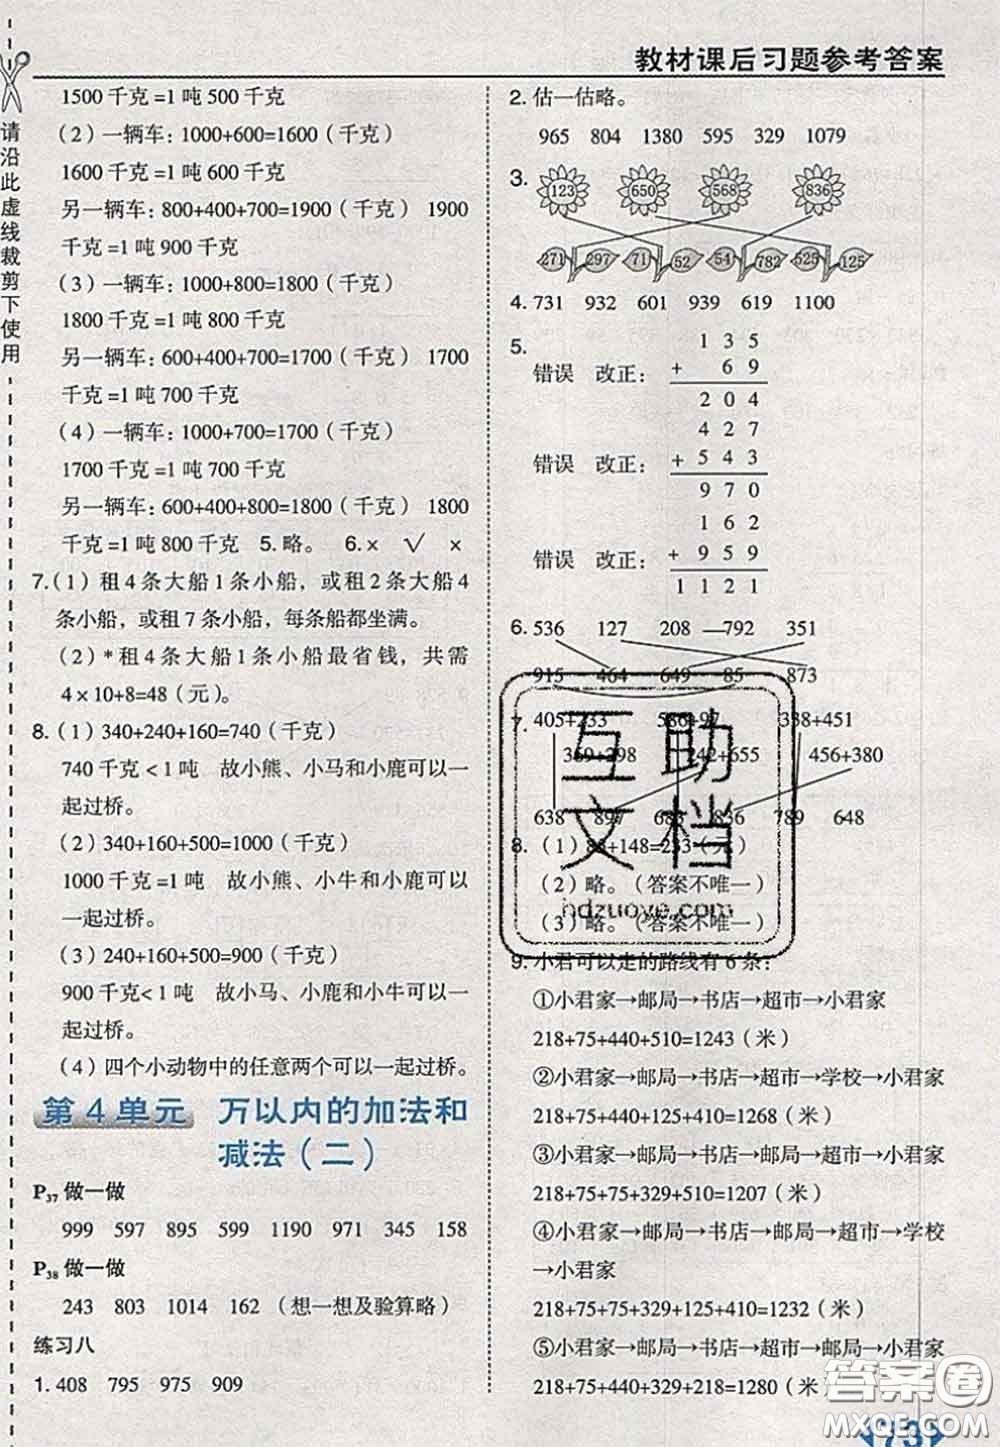 教材课后习题参考答案
请沿此虚线裁剪下使用
1500千克=1吨500千克
（2）一辆车：1000+600=1600（千克）
1600千克=1吨600千克
另一辆车：800+400+700=1900（千克） 1900
千克=1吨900千克
（3）一辆车：1000+800=1800（千克）
1800千克=1吨800千克
另一辆车：600+400+700=1700（千克） 1700
千克=1吨700千克
（4）一辆车：1000+700=1700（千克）
1700千克=1吨700千克
另一辆车：600+400+800=1800（千克） 1800
千克=1吨800千克 5.略。 6.× √ ×
7.（1）租4条大船1条小船，或租2条大船4
条小船，或租7条小船，每条船都坐满。
（2）*租4条大船1条小船最省钱，共需
4×10+8=48（元）。
8.（1）340+240+160=740（千克）
740千克<1吨 故小熊、小马和小鹿可以一
起过桥。
（2）340+160+500=1000（千克）
1000千克=1吨 故小熊、小牛和小鹿可以
一起过桥。
（3）240+160+500=900（千克）
900千克<1吨 故小马、小鹿和小牛可以一
起过桥。
（4）四个小动物中的任意两个可以一起过桥。
第4单元 万以内的加法和
减法（二）
P37 做一做
999 597 895 599 1190 971 345 158
P38 做一做
243 803 1014 162 （想一想及验算略）
练习八
1. 408 795 975 909
2. 估一估略。
965 804 1380 595 329 1079
3. 123 650 568 836
271 297 71 52 54 782 525 125
4. 731 932 601 939 619 1100
5.
1 3 5
错误 改正： + 6 9
2 0 4
4 2 7
错误 改正： + 5 4 3
9 7 0
1 6 2
错误 改正： + 9 5 9
1 1 2 1
6. 536 127 208 792 351
915 464 649 85 873
7. 405+233 586+97 338+451
242+655 456+380
638 897 683 836 789 648
8.（1）85+148=233（元）
（2）略。（答案不唯一）
（3）略。（答案不唯一）
9. 小君可以走的路线有6条：
①小君家→邮局→书店→超市→小君家
218+75+440+510=1243（米）
②小君家→邮局→书店→超市→学校→小君家
218+75+440+125+410=1268（米）
③小君家→邮局→书店→邮局→超市→小君家
218+75+75+329+510=1207（米）
④小君家→邮局→书店→邮局→超市→学校
→小君家
218+75+75+329+125+410=1232（米）
⑤小君家→邮局→书店→超市→邮局→小君家
218+75+440+329+218=1280（米）
互助
文档
hdzuoye.com
答案圈
MXQE.COM